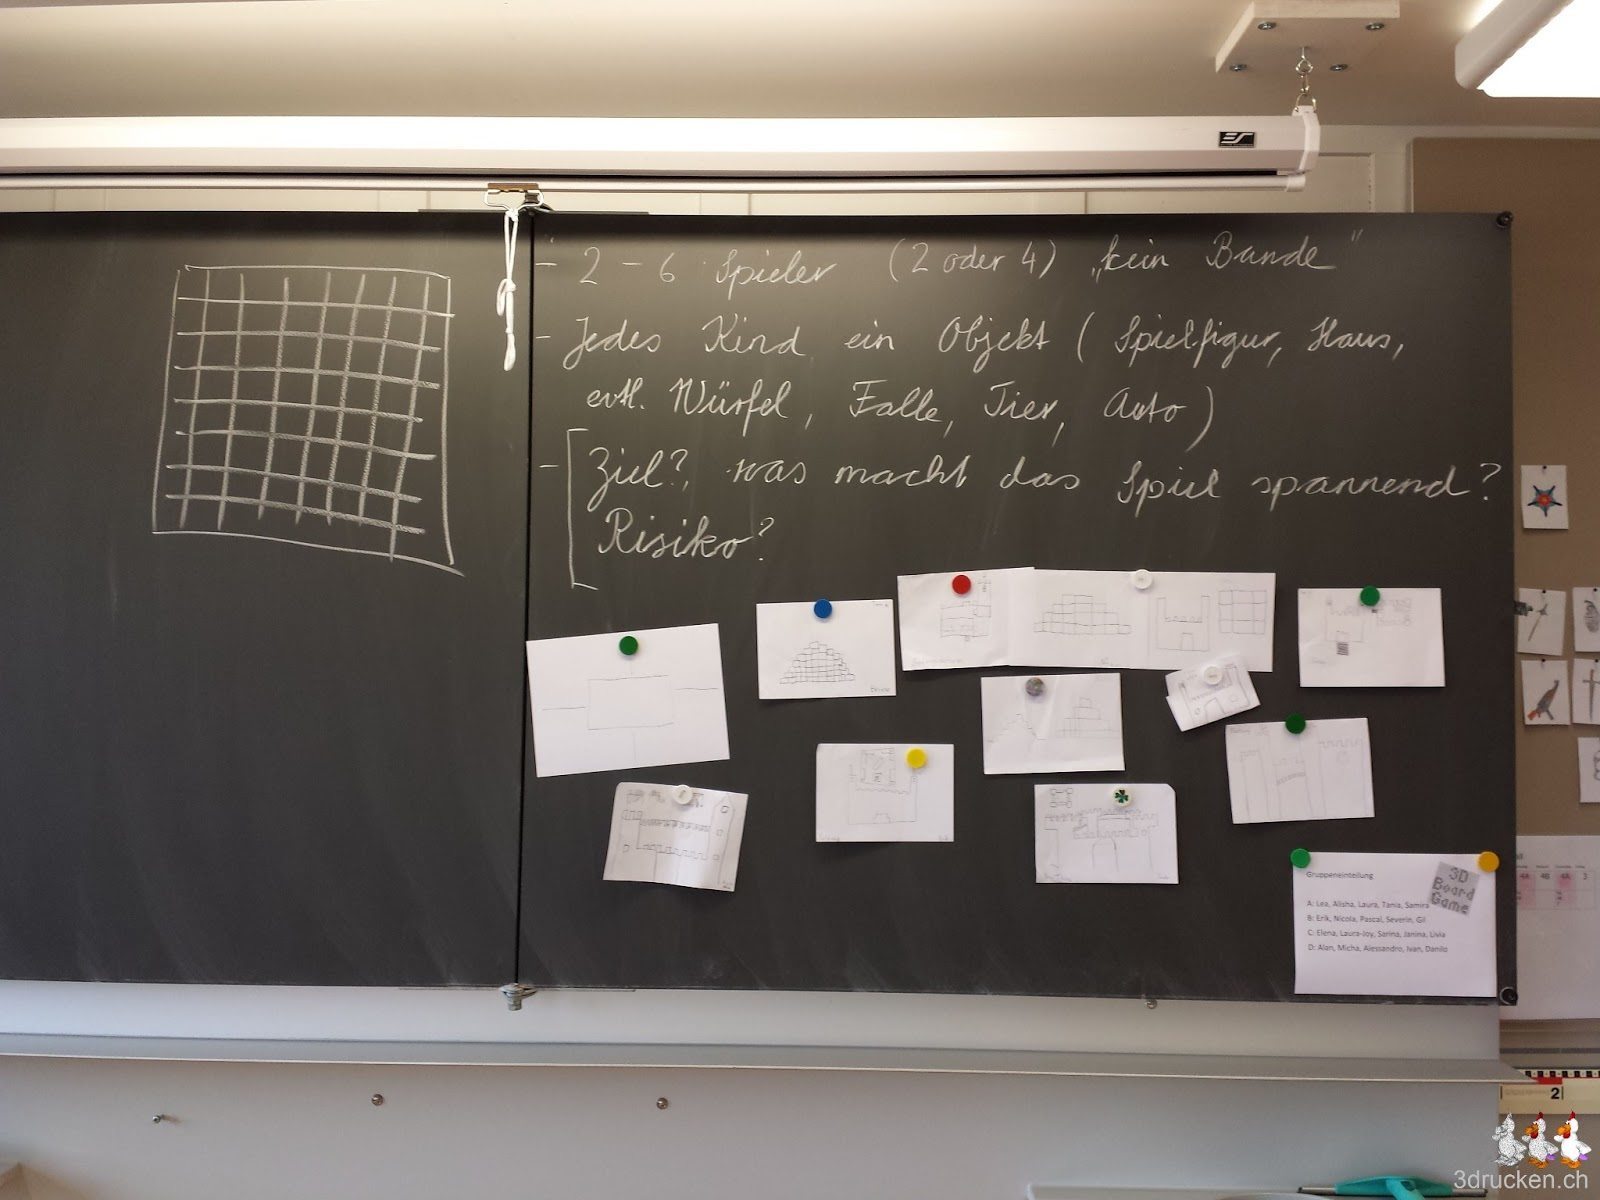 - 2 - 6 Spieler (2 oder 4) „kein Bande"
- Jedes Kind ein Objekt (Spielfigur, Haus,
evtl. Würfel, Falle, Tier, Auto)
- Ziel?, was macht das Spiel spannend?
Risiko?
Gruppeneinteilung
3D
Board
Game
A: Lea, Alisha, Laura, Tania, Samira
B: Erik, Nicola, Pascal, Severin, Gil
C: Elena, Laura-Joy, Sarina, Janina, Livia
D: Alan, Micha, Alessandro, Ivan, Danilo
ES
4A 4B 4A 3
2
3drucken.ch